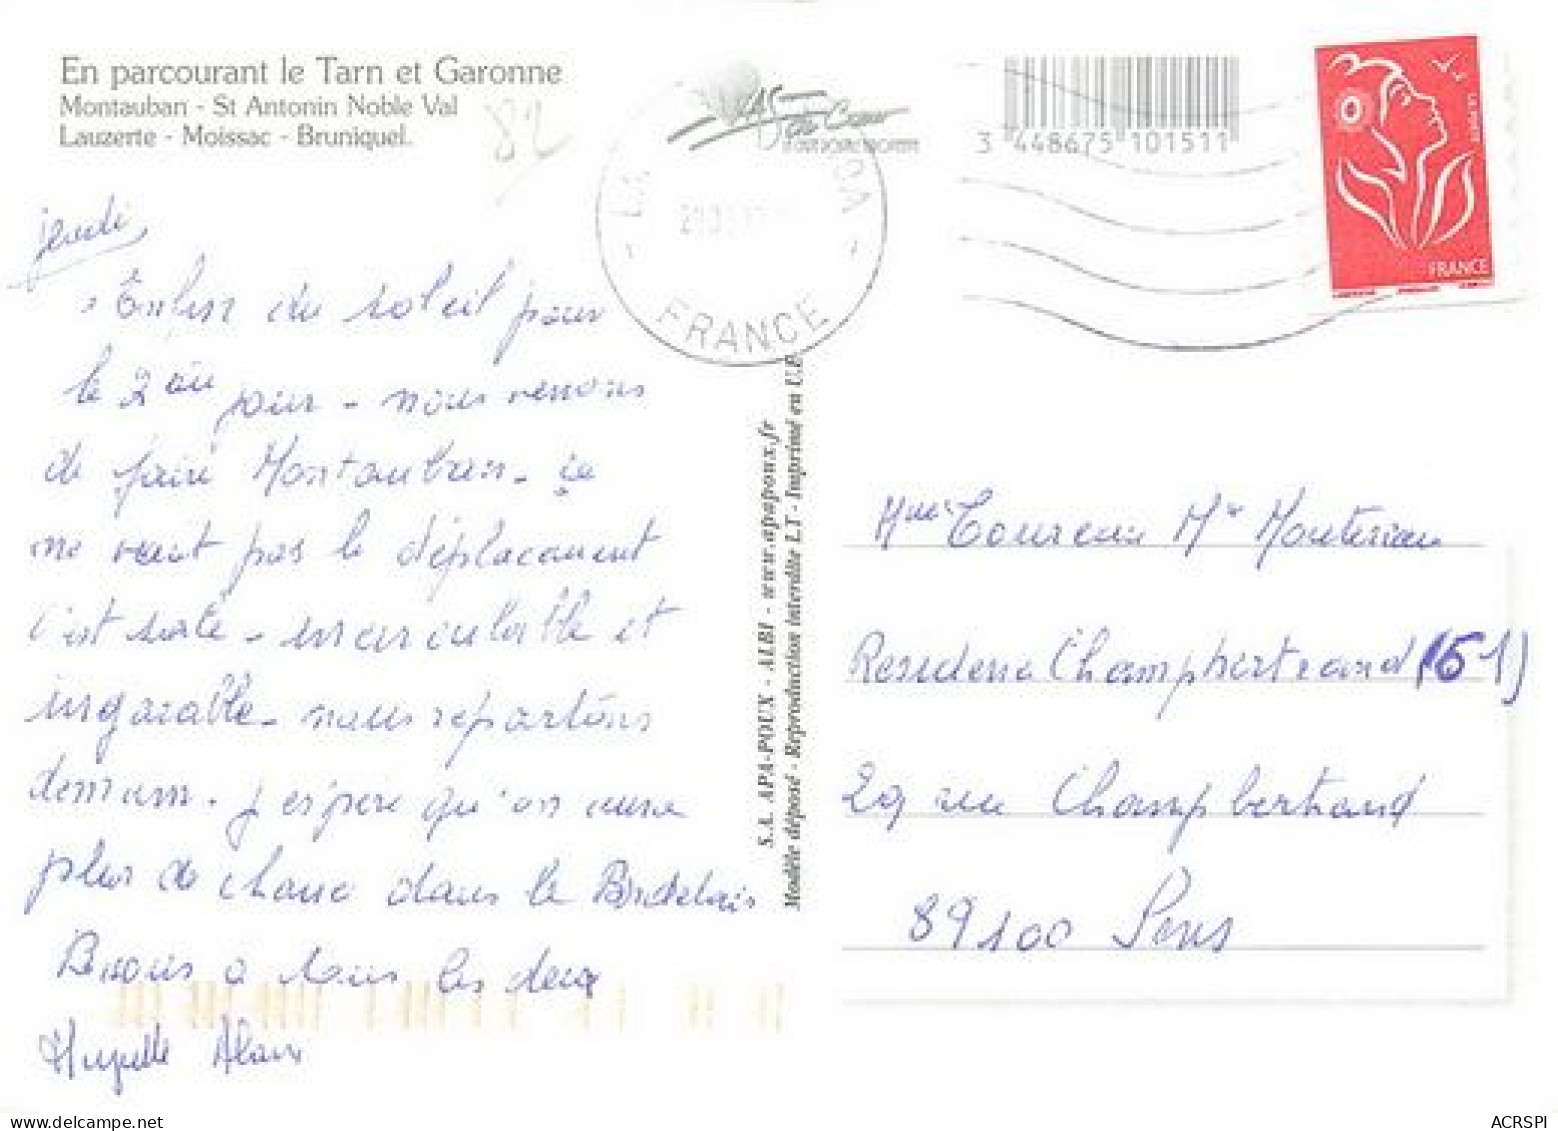 En parcourant le Tarn et Garonne
Montauban - St Antonin Noble Val
Lauzerte - Moissac - Bruniquel.
82
3 448675 101511
LA POSTE
FRANCE
FRANCE
jeudi
Enfin du soleil pour
le 2 jour - nous venons
de faire Montauban - ça
ne vaut pas le déplacement
c'est sale - incirculable et
ingarable - nous repartons
demain - j'espère qu'on aura
plus de chance dans le Bordelais
Bisous a tous les deux
Huguette Alain
S.A. APA-POUX - ALBI - www.apapoux.fr
Modèle déposé - Reproduction interdite LT - Imprimé en U.E
Mme Mr
Residence Champbertrand (61)
29 rue Champbertrand
89100 Sens
ACRSPI